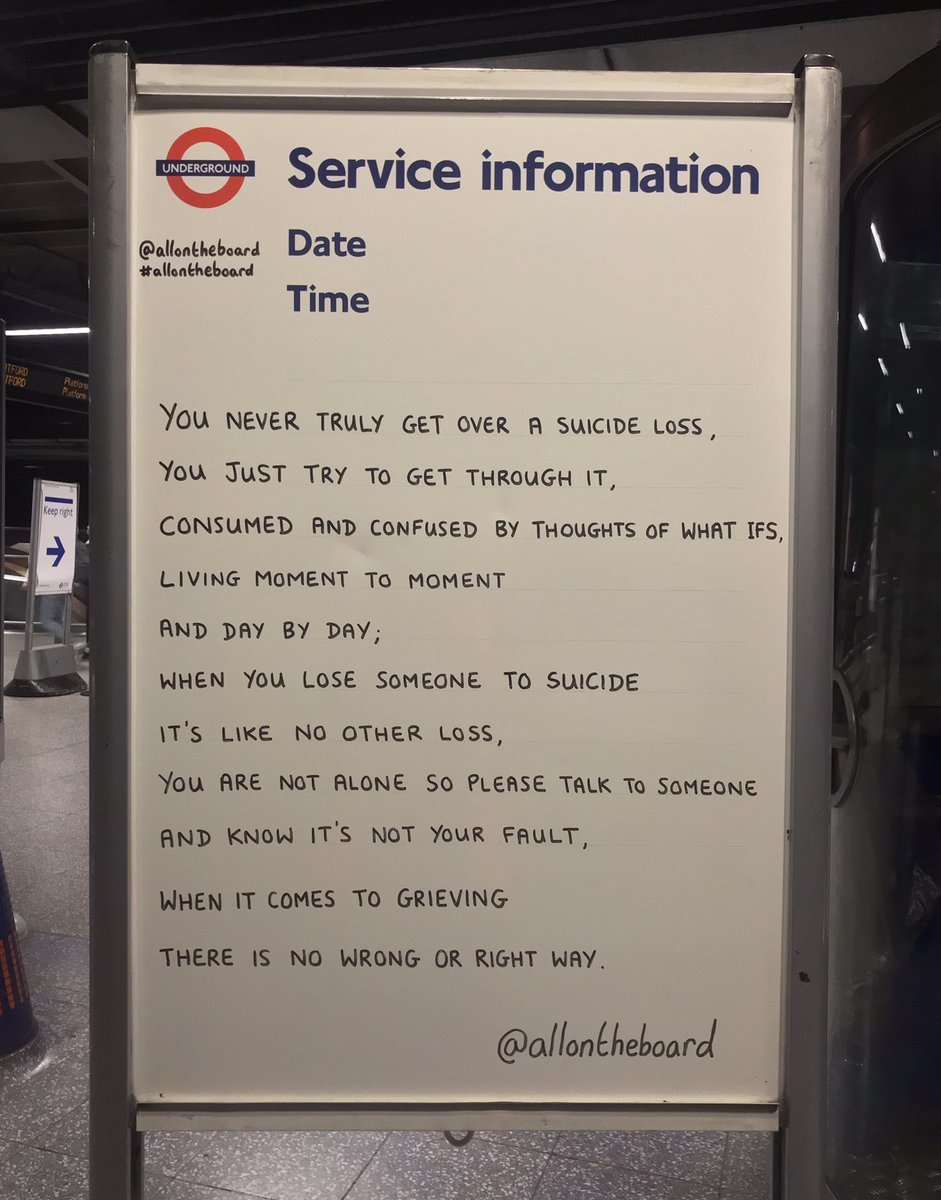 UNDERGROUND
Service information
@allontheboard
#allontheboard
Date
Time
TFORD
TFORD
Platform
Platform
Keep right
YOU NEVER TRULY GET OVER A SUICIDE LOSS,
YOU JUST TRY TO GET THROUGH IT,
CONSUMED AND CONFUSED BY THOUGHTS OF WHAT IFS,
LIVING MOMENT TO MOMENT
AND DAY BY DAY;
WHEN YOU LOSE SOMEONE TO SUICIDE
IT'S LIKE NO OTHER LOSS,
YOU ARE NOT ALONE SO PLEASE TALK TO SOMEONE
AND KNOW IT'S NOT YOUR FAULT,
WHEN IT COMES TO GRIEVING
THERE IS NO WRONG OR RIGHT WAY.
@allontheboard